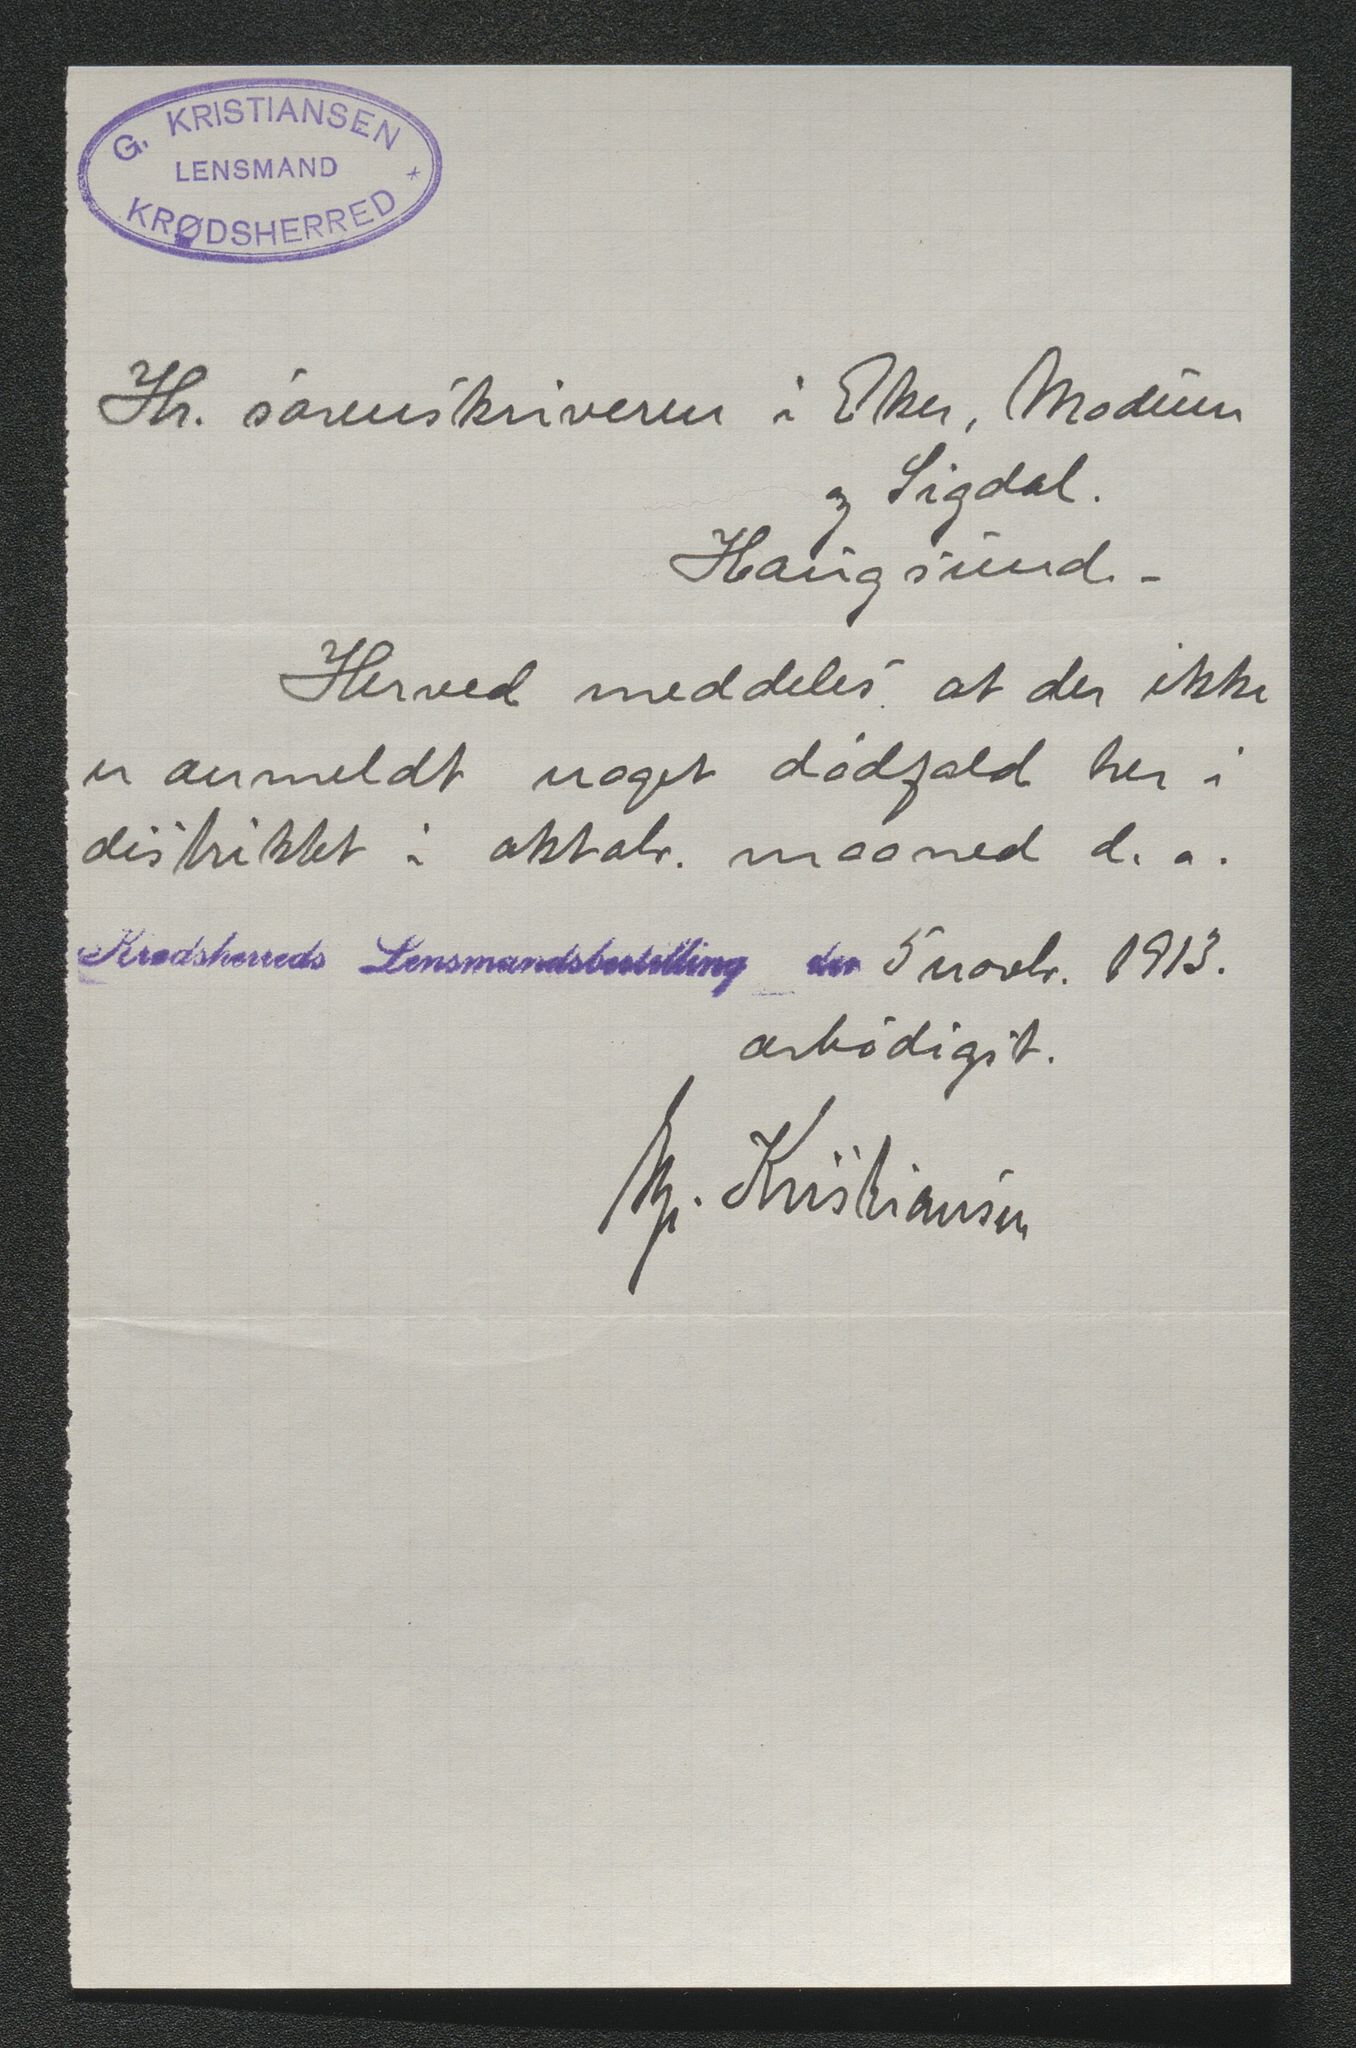 G. KRISTIANSEN
LENSMAND
KRØDSHERRED *
Hr. sorenskriveren i Eker, Modum
og Sigdal.
Haugsund. -
Herved meddeles at der ikke
er anmeldt noget dødsfald her i
distriktet i oktobr. maaned d. a.
Krødsherreds Lensmandsbestilling den 5 novbr. 1913.
ærbødigst.
G. Kristiansen